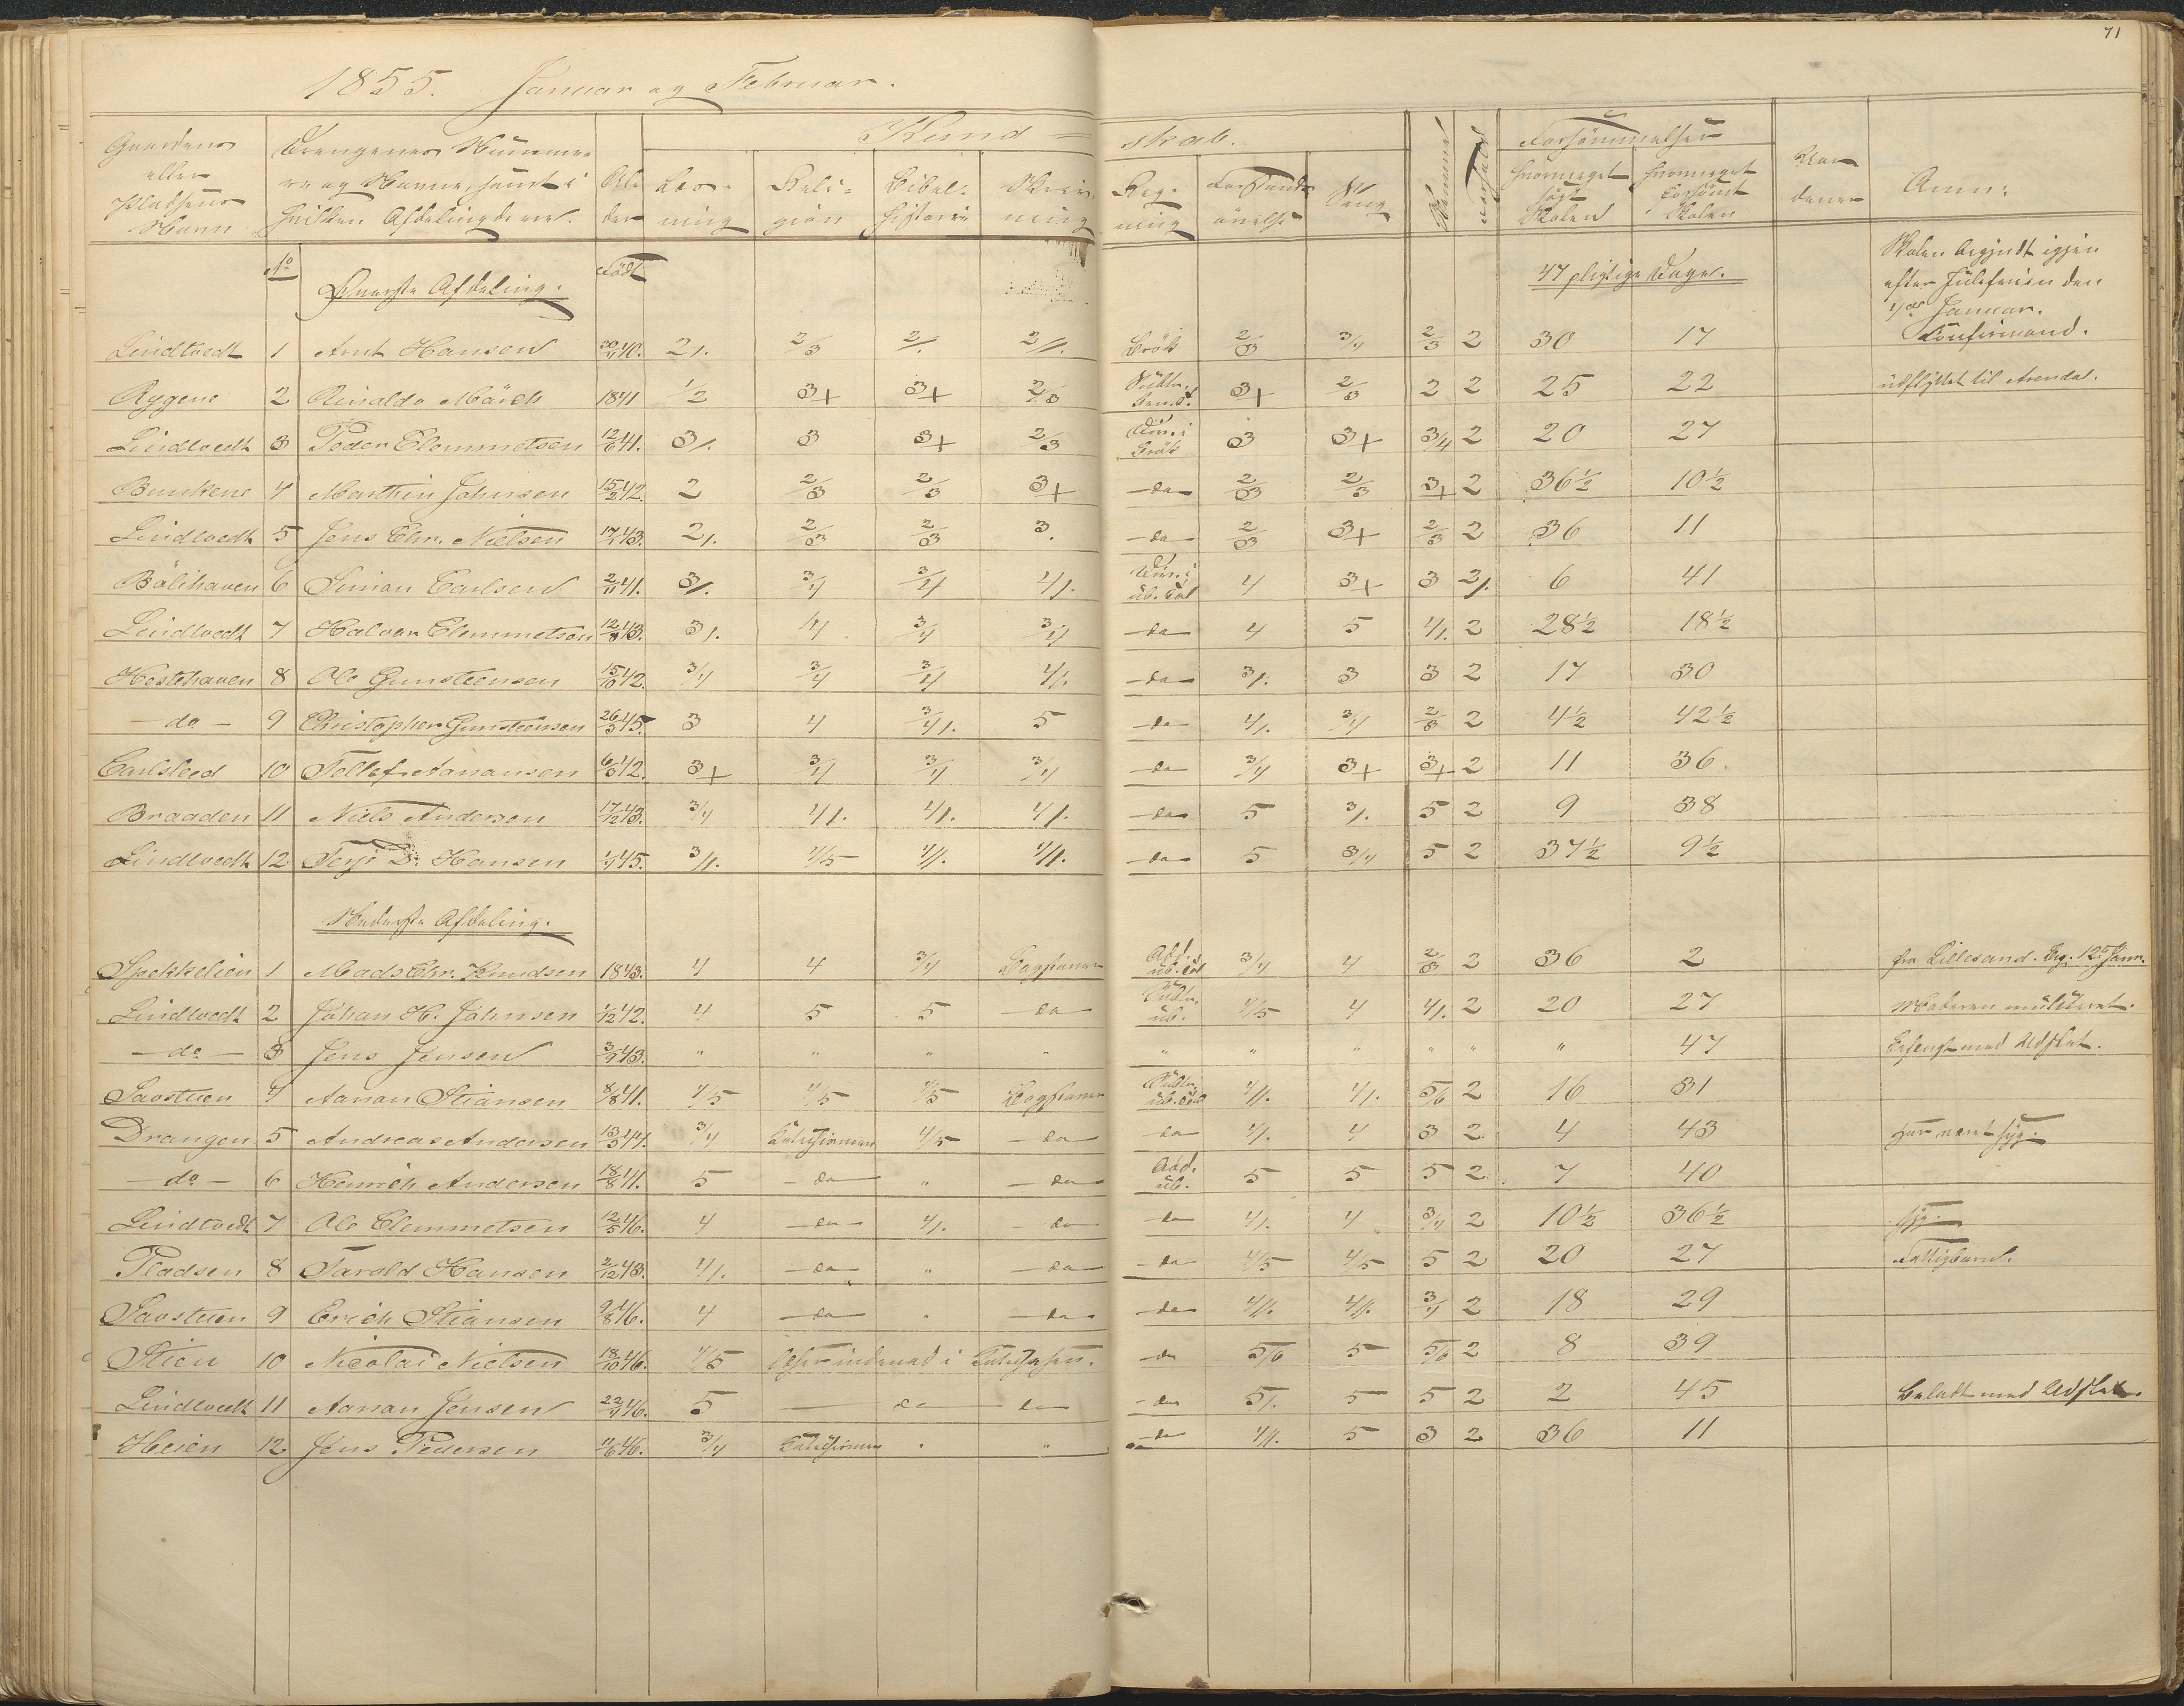 71
1855. Januar og Februar.
Gaardens eller Pladsens Navn | Drengenes Numme- re og Navne, samt i hvilken Afdeling de ere. | Al- der | Kund = skab. | Forsømmelser | Anm:
Læs- ning | Reli- gion | Bibel- historie | Skriv- ning | Reg- ning | Forstands- øvelse | Sang | Hvormeget søgt Skolen | Hvormeget forsømt Skolen
1º Øverste Afdeling. | Født | 47 pligtige Dage. | Skolen begyndt igjen efter Juleferien den Januar.
Lindtvedt 1 Arnt Hansen 40. 2/. 2/3 2/. Brök 2/3 3/4 2/3 2 30 17 Konfirmand.
Rygene 2 Rinaldo March 1841 1/2 3+ 3+ 2/3 3+ 2/3 2 2 25 22 udflyttet til Arendal.
Lindtvedt 3 Peder Clemmetsen 12/6 41. 3/. 3 3+ 2/3 Div. i Brök 3 3+ 3/4 2 20 27
Bunkene 4 Marthin Johnsen 15/2 42. 2 2/3 2/3 3+ -do- 2/3 2/3 3+ 2 36½ 10½
Lindtvedt 5 Jens Chr. Nielsen 43. 2/. 2/3 2/3 3. -do- 2/3 3+ 2/3 2 36 11
Bölihaven 6 Simon Carlsen 2/11 41. 3/. 3/4 3/4 4/. Div. i ub. Tal 4 3+ 3 2/. 6 41
Lindtvedt 7 Halvor Clemmetsen 43. 3/. 4 3/4 3/4 -do- 4 5 4/. 2 28½ 18½
Hestehaven 8 Ole Gunsteensen 15/10 42. 3/4 3/4 3/4 4/. -do- 3/. 3 3 2 17 30
- do - 9 Christopher Gunsteensen 26/3 45. 3 4 3/4/. 5 -do- 4/. 3/4 2/3 2 4½ 42½
Carlsleed 10 Tellef Aanansen 6/3 42. 3+ 3/4 3/4 3/4 -do- 3/4 3+ 3+ 2 11 36.
Braaden 11 Niels Andersen 17/12 43. 3/4 4/. 4/. 4/. -do- 5 3/. 5 2 9 38
Lindtvedt 12 Terje D. Hansen 45. 3/. 4/5 4/. 4/. -do- 5 3/4 5 2 37½ 9½
Nederste Afdeling.
1 Mads Chr. Knudsen 1843. 4 4 3/4 Add. i ub. Tal 3/4 4 2/3 2 36 2 fra Lillesand. Beg. 12te Janr.
Lindtvedt 2 Johan H. Johnsen 1/12 42. 4 5 5 do ub. 4/5 4 4/. 2 20 27
- do - 3 Jens Jensen 43. " " " " " " " " " " 47 med Udslæt.
Savstuen 4 Aanon Stiansen 8/8 41. 4/5 4/5 4/5 ub. Tal 4/. 4/. 5/6 2 16 31
Drangen 5 Andreas Andersen 13/3 44. 3/4 4/5 - do - do 4/. 4 3 2 4 43 har været syg.
- do - 6 Henrich Andersen 18/8 41. 5 - do " - do Add. ub. 5 5 5 2 7 40
Lindtvedt 7 Ole Clemmetsen 12/5 46. 4 - do - 4/. - do - do 4/. 4 3/4 2 10½ 36½ syg.
Pladsen 8 Tarald Hansen 2/12 43. 4/. - do - " - do - do 4/5 4/5 5 2 20 27 Fattigbarn.
Savstuen 9 Erich Stiansen 9/8 46. 4 - do - " - do - do 4/. 4/. 3/4 2 18 29
Stien 10 Nicolai Nielsen 18/10 46. 4/5 - do 5/6 5 5/6 2 8 39
Lindtvedt 11 Aanon Jensen 46. 5 - do - do - do 5/. 5 5 2 2 45 med Udslæt.
Heien 12 Jens Pedersen 46. 3/4 " " do 4/. 5 3 2 36 11